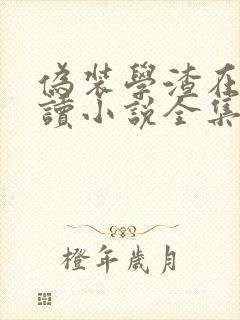 偽裝學渣在
讀小說全集
橙年歲月